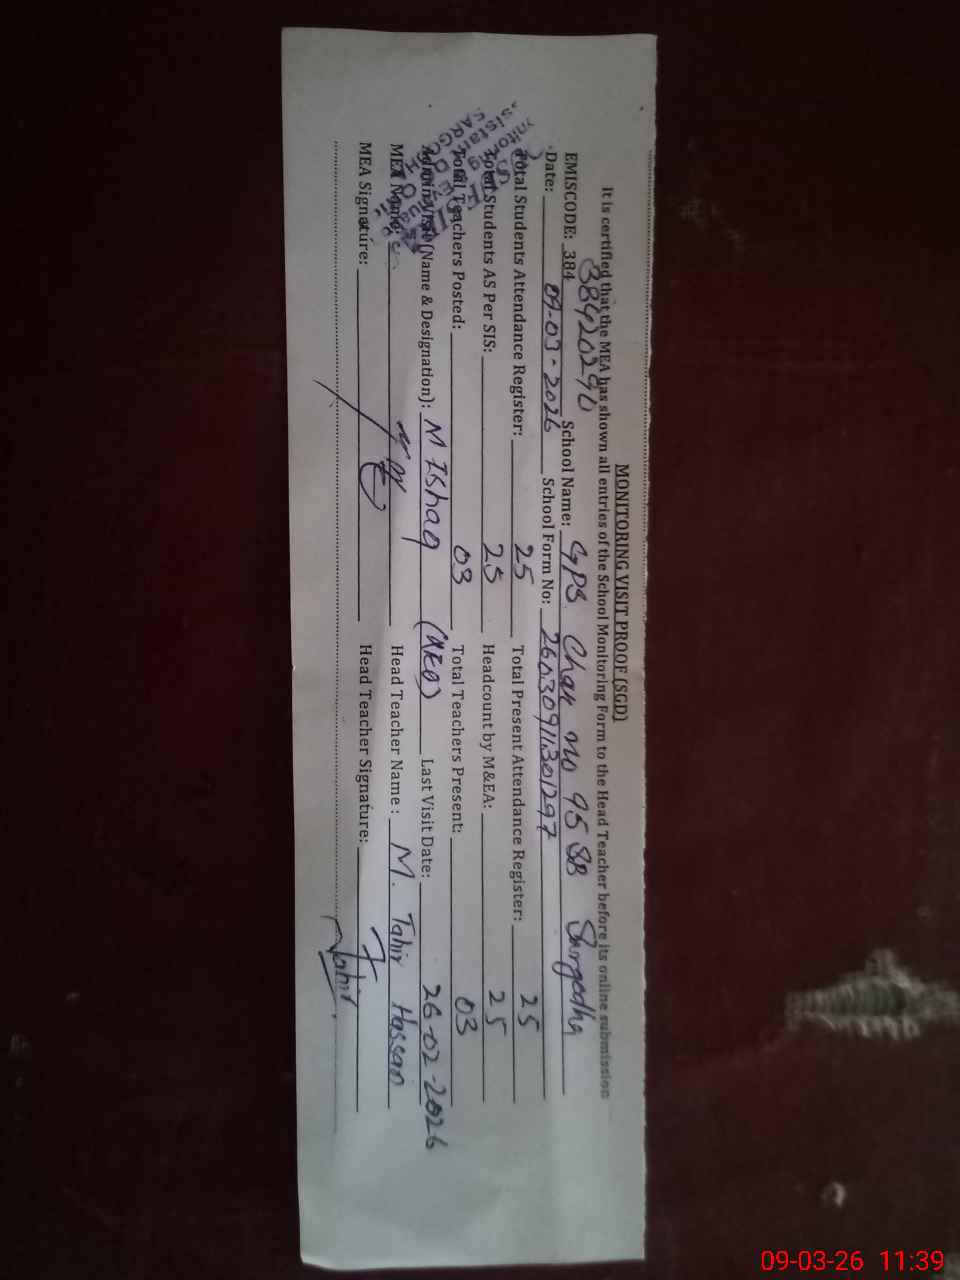 MONITORING VISIT PROOF (SGD)
It is certified that the MEA has shown all entries of the School Monitoring Form to the Head Teacher before its online submission
EMISCODE: 384 38420290 School Name: GPS Chak no 95 SB Sargodha
Date: 09-03-2026 School Form No:
Total Students Attendance Register: 25 Total Present Attendance Register: 25
Total Students AS Per SIS: 25 Headcount by M&EA: 25
Total Teachers Posted: 03 Total Teachers Present: 03
(Name & Designation): M Ishaq (AEO) Last Visit Date: 26-02-2026
MEA Name: Head Teacher Name: M. Tahir Hassan
MEA Signature: Head Teacher Signature: Tahir
09-03-26 11:39